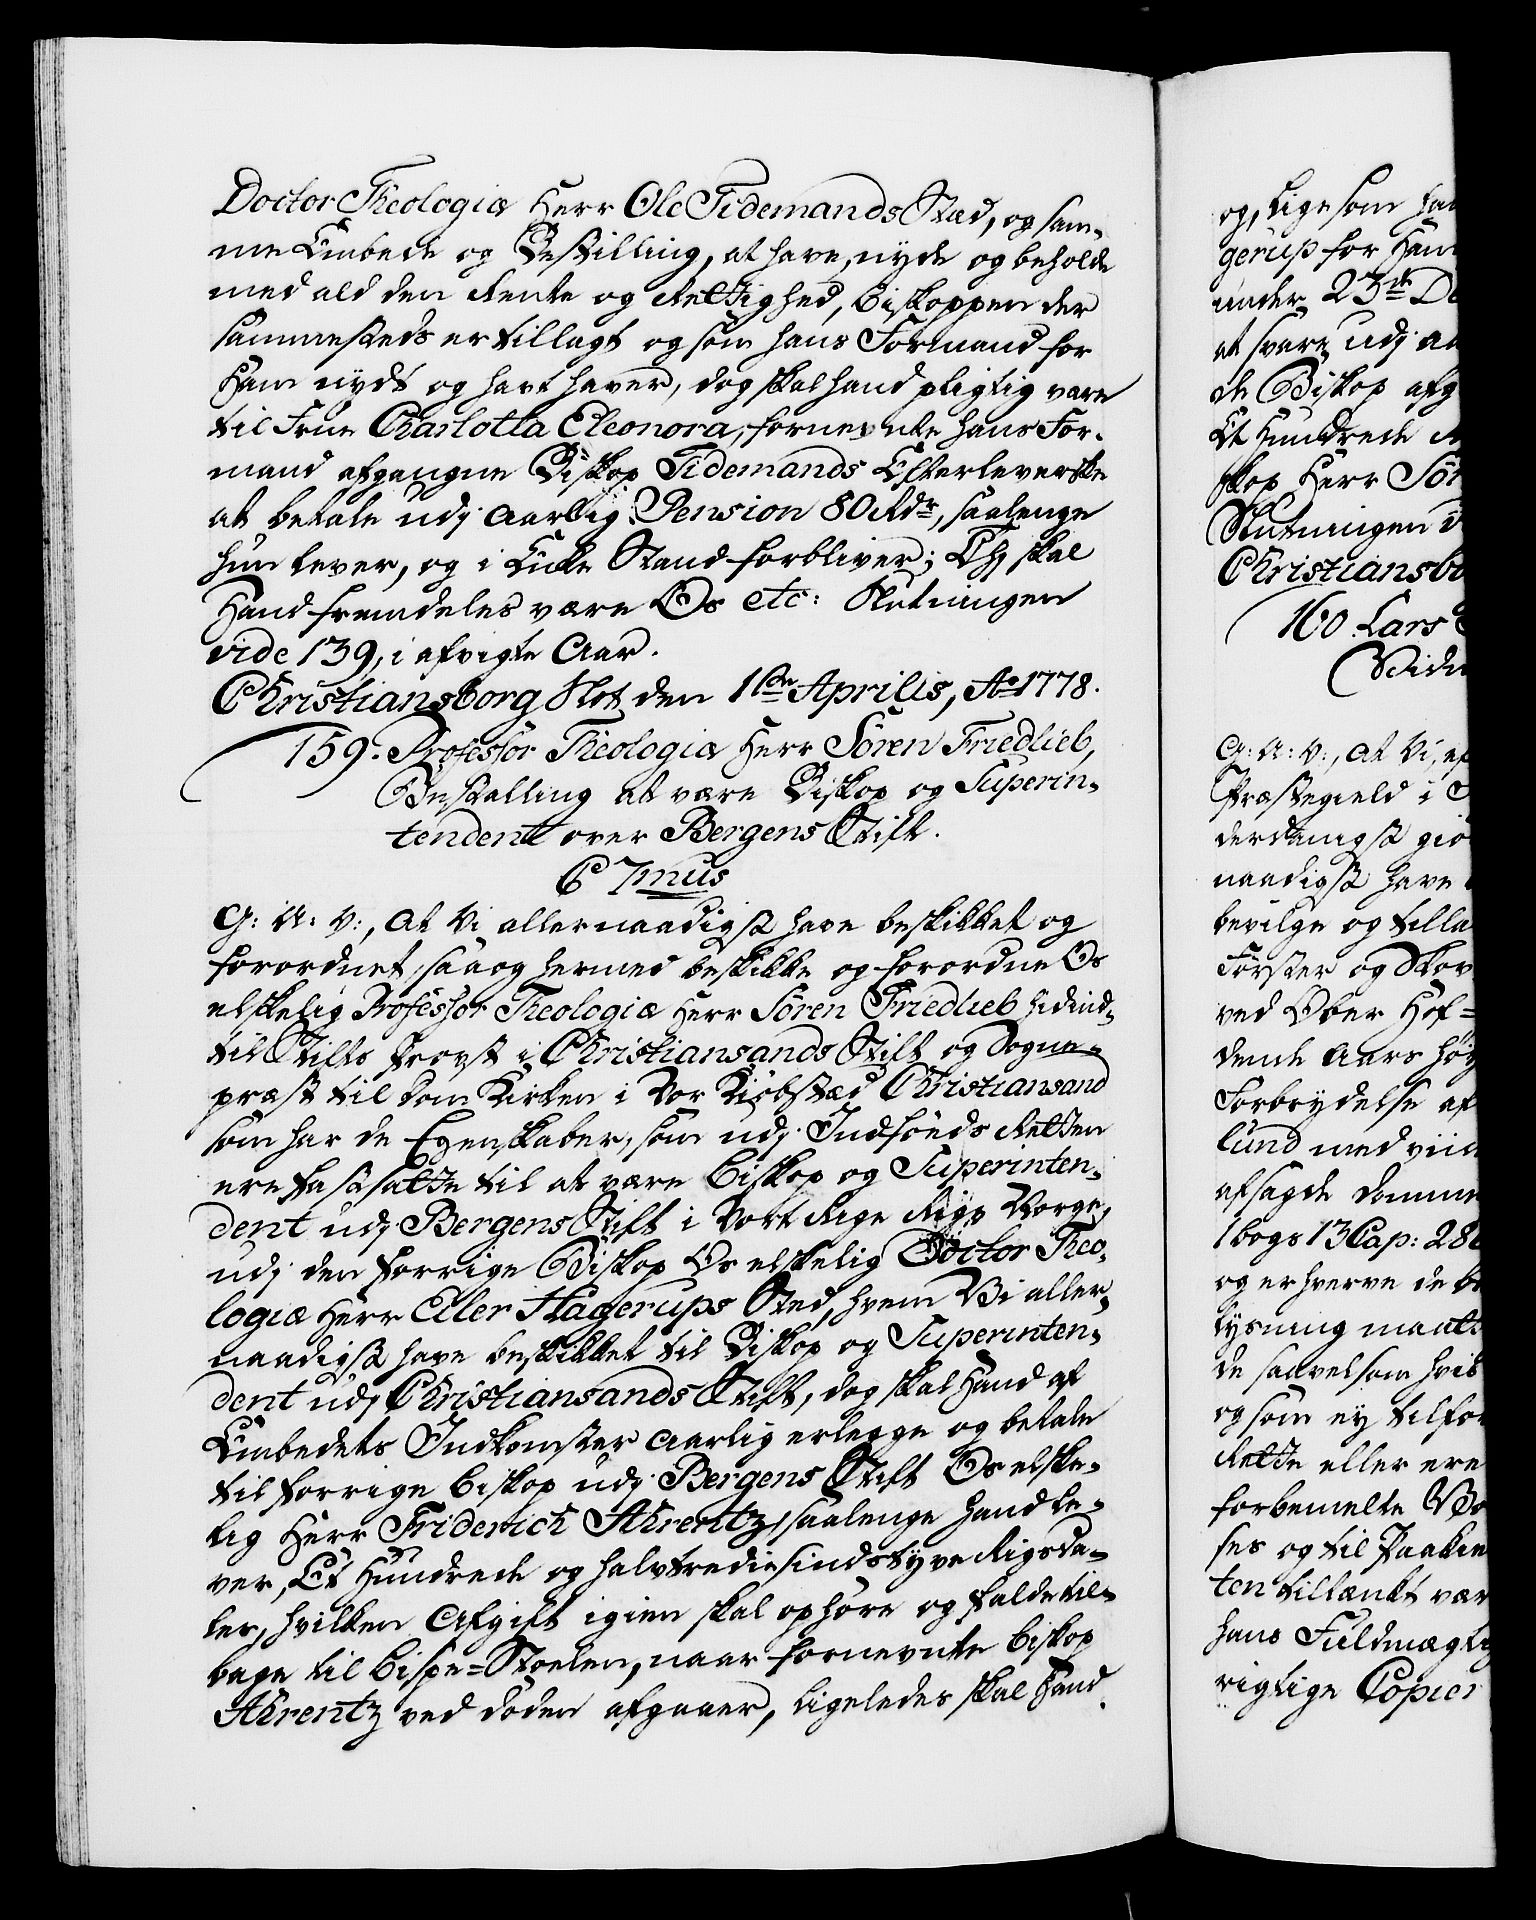 Doctor Theologiæ Herr Ole Tidemands Stæd, og sam-
me Embede og Bestilling, at have, nyde og beholde
med ald den Rente og Rettighed, Biskoppen der
sammesteds er tillagt og som hans Formand for
Ham nydt og havt haver, dog skal hand pligtig være
til Frue Charlotta Eleonora, fornevnte hans For-
mand afgangne Biskop Tidemands Efterleverske
at betale udj aarlig Pension 80 Rdr, saalenge
hun lever, og i Enke Stand forbliver; Thj skal
Hand fremdeles være Os etc: Slutningen
vide 139, i afvigte Aar.
Christiansborg Slot den 1ste Aprilis, Ao 1778.
159. Professor Theologiæ Herr Sören Friedlieb,
Bestalling at være Biskop og Superin-
tendent over Bergens Stift.
C 7mus
G: A: V:, At Vi allernaadigst have beskikket og
forordnet, saa og hermed beskikke og forordne Os
elskelig Professor Theologiæ Herr Sören Friedlieb hidind-
til Stifts Provst i Christiansands Stift og Sogne-
præst til Dom Kirken i Vor Kiöbstæd Christiansand
som har de Egenskaber, som udj Indföds Retten
ere fastsatte til at være Biskop og Superinten-
dent udj Bergens Stift i Vort Rige Norge,
udj den forrige Biskop Os elskelig Doctor Theo-
logiæ Herr Eiler Hagerups Sted, hvem Vi aller-
naadigst have beskikket til Biskop og Superinten-
dent udj Christiansands Stift, dog skal Hand af
Embedets Indkomster aarlig erlegge og betale
til forrige Biskop udj Bergens Stift Os elske-
lig Herr Friderich Ahrentz, saalenge hand le-
ver, Et Hundrede og halvtrediesindstyve Rigsda-
ler, hvilken Afgift igien skal ophöre og falde til-
bage til Bispe-Stoelen, naar fornevnte Biskop
Ahrentz ved döden afgaaer, ligeledes skal Hand
og, lige som
gerup for Ham
under 23de
at svare udj
de Biskop
Et Hundrede
skop Herr Sör
Slutningen
Christiansbo
160. Lars
G: A: V:, At Vi,
Præstegield i
derdanigst
naadigst have
bevilge og tilla
Förster og Skov
ved Ober Hof-
dende Aars
Forbrydelse af
lund med
afsagde Domme
1 bogs 13 Cap: 28
og erhverve de
lysning
de saavelsom hvis
og som ey
Rette eller ere
forbemelte
ses og til
ten tiltænkt vær
hans Fuldmægtig
rigtige Copier